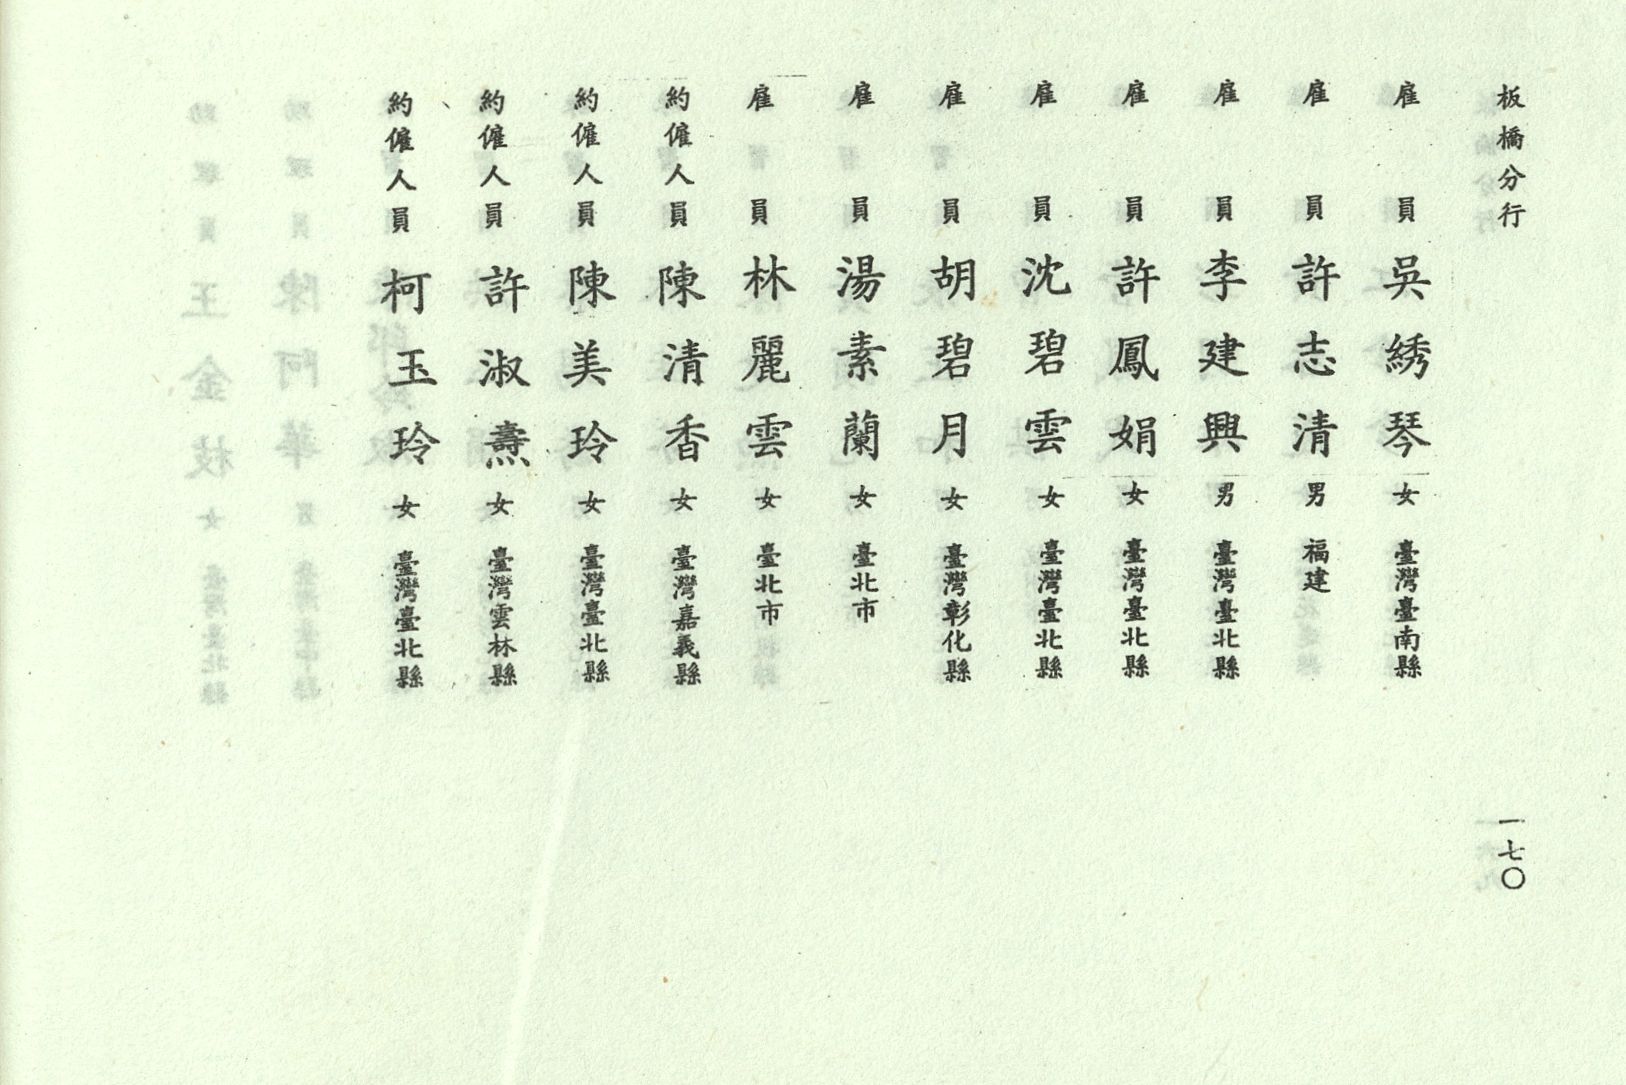 板橋分行
雇員 吳綉琴 女 臺灣臺南縣
雇員 許志清 男 福建
雇員 李建興 男 臺灣臺北縣
雇員 許鳳娟 女 臺灣臺北縣
雇員 沈碧雲 女 臺灣臺北縣
雇員 胡碧月 女 臺灣彰化縣
雇員 湯素蘭 女 臺北市
雇員 林麗雲 女 臺北市
約僱人員 陳清香 女 臺灣嘉義縣
約僱人員 陳美玲 女 臺灣臺北縣
約僱人員 許淑燾 女 臺灣雲林縣
約僱人員 柯玉玲 女 臺灣臺北縣
一七〇